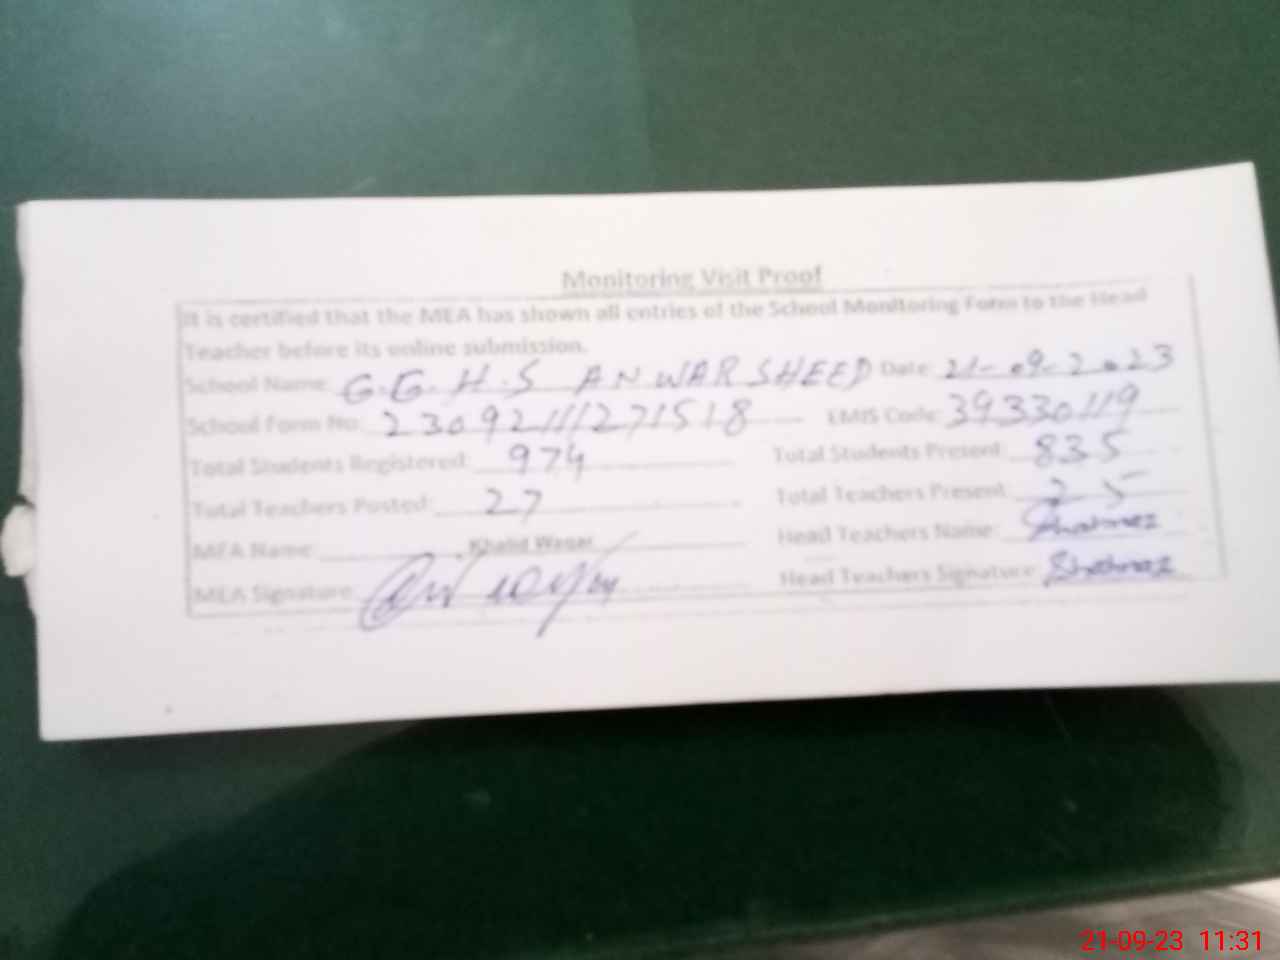 Monitoring Visit Proof
It is certified that the MEA has shown all entries of the School Monitoring Form to the Head
Teacher before its online submission.
School Name: G.G.H.S ANWAR SHEED Date: 21-09-2023
School Form No: 23092111271518 EMIS Code: 39330119
Total Students Registered: 974 Total Students Present: 835
Total Teachers Posted: 27 Total Teachers Present: 25
MEA Name: Khalid Waqar Head Teachers Name: Shahnaz
MEA Signature: Head Teachers Signature: Shahnaz
21-09-23 11:31